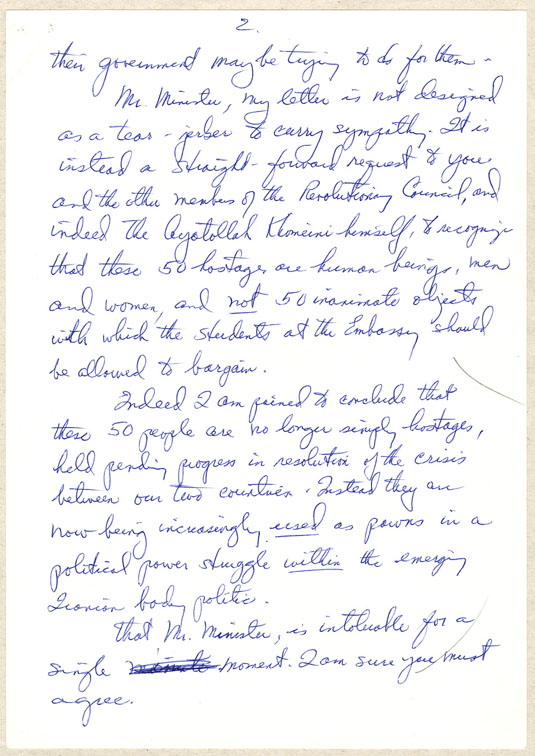 2.
their government may be trying to do for them -
Mr. Minister, my letter is not designed
as a tear-jerker to curry sympathy. It is
instead a straight-forward request to you
and the other members of the Revolutionary Council, and
indeed the Ayatollah Khomeini himself, to recognize
that these 50 hostages are human beings, men
and women, and not 50 inanimate objects
with which the students at the Embassy should
be allowed to bargain.
Indeed I am pained to conclude that
these 50 people are no longer simply hostages,
held pending progress in resolution of the crisis
between our two countries. Instead they are
now being increasingly used as pawns in a
political power struggle within the emerging
Iranian body politic.
That Mr. Minister, is intolerable for a
single minute moment. I am sure you must
agree.